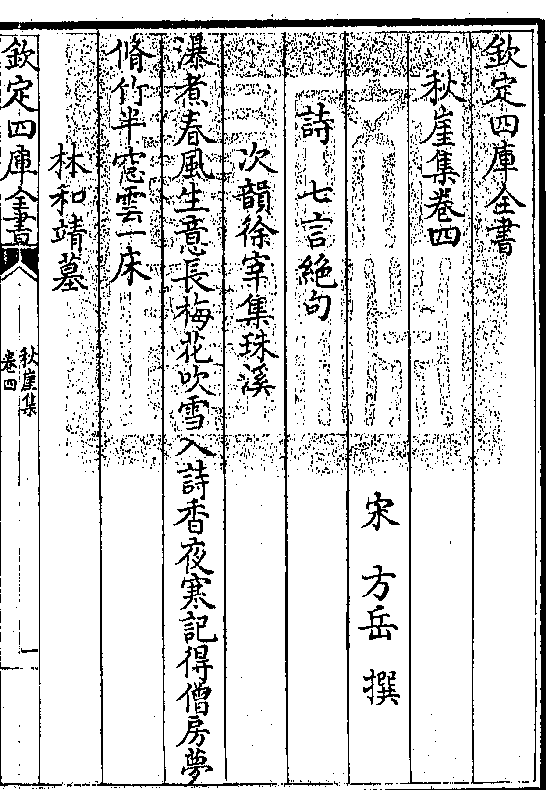 欽定四庫全書
秋崖集卷四
宋 方岳 撰
詩 七言絶句
次韻徐宰集珠溪
瀑煮春風生意長梅花吹雪入詩香夜寒記得僧房夢
脩竹半窻雲一床
林和靖墓
欽定四庫全書
秋崖集
卷四